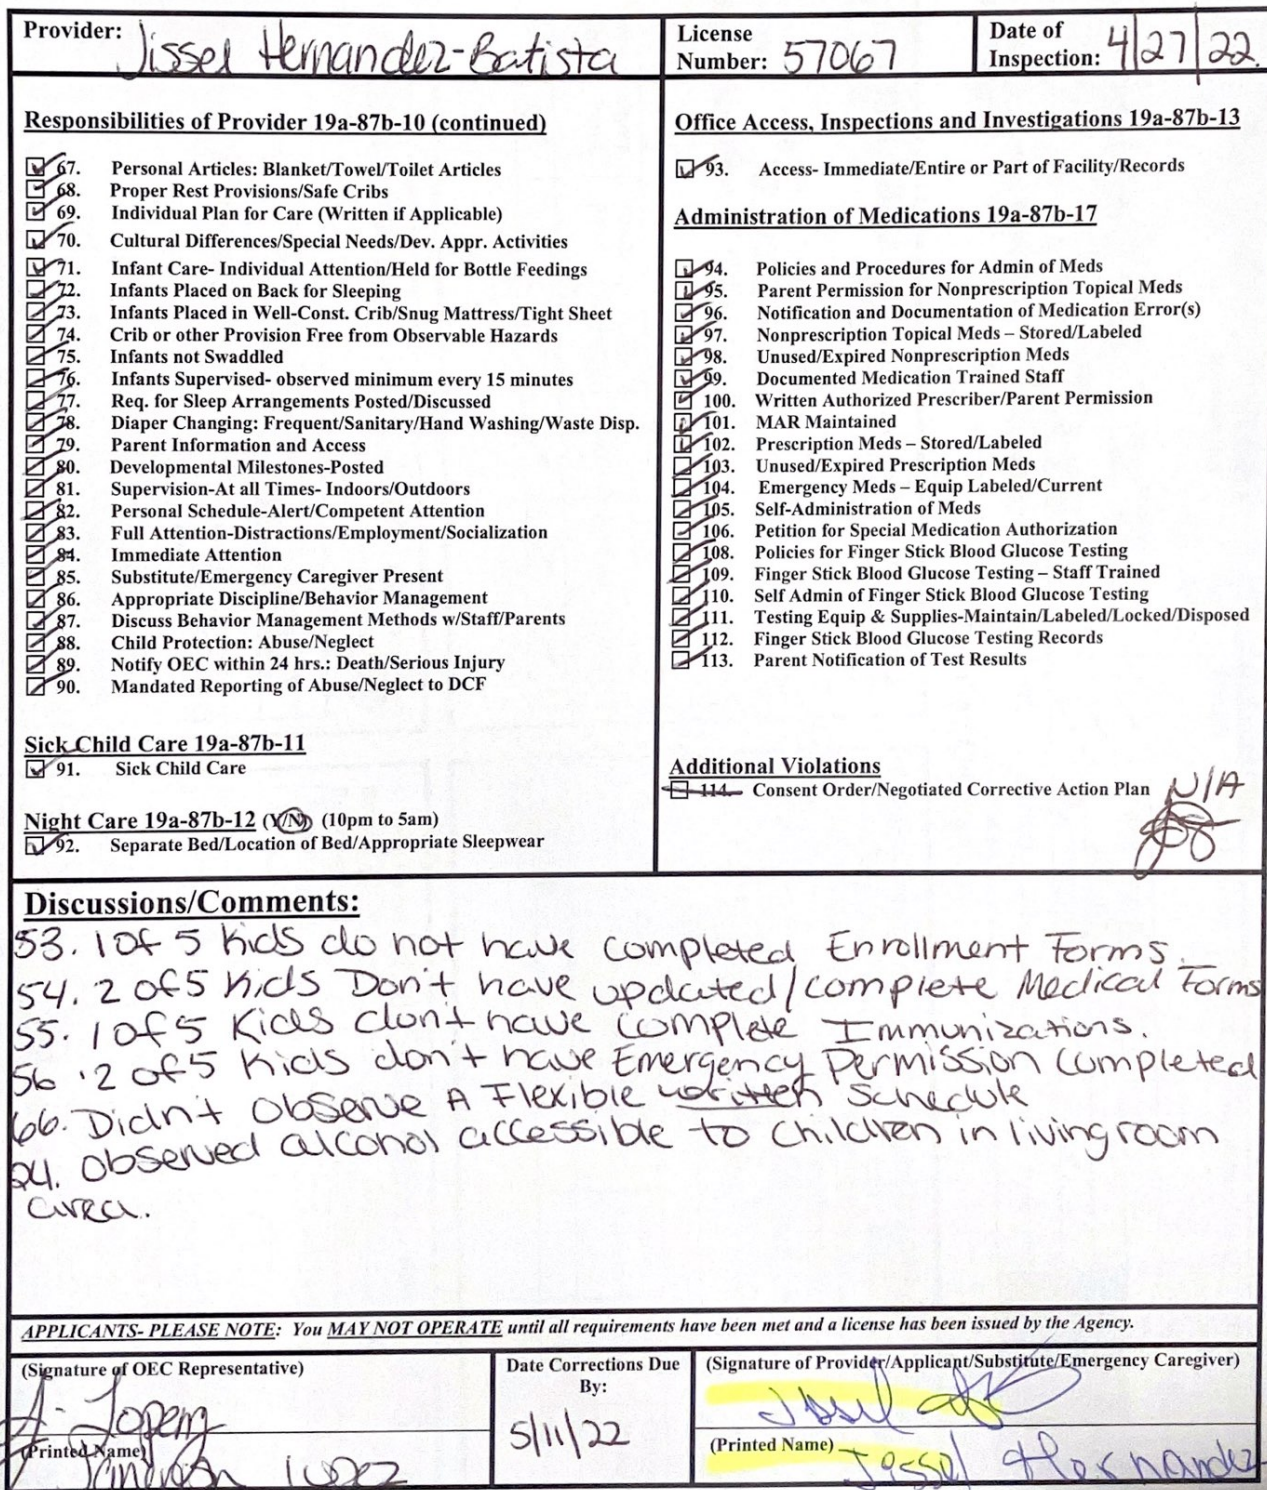 Provider: Jissel Hernandez-Batista
License Number: 57067
Date of Inspection: 4/27/22.
Responsibilities of Provider 19a-87b-10 (continued)
67. Personal Articles: Blanket/Towel/Toilet Articles
68. Proper Rest Provisions/Safe Cribs
69. Individual Plan for Care (Written if Applicable)
70. Cultural Differences/Special Needs/Dev. Appr. Activities
71. Infant Care- Individual Attention/Held for Bottle Feedings
72. Infants Placed on Back for Sleeping
73. Infants Placed in Well-Const. Crib/Snug Mattress/Tight Sheet
74. Crib or other Provision Free from Observable Hazards
75. Infants not Swaddled
76. Infants Supervised- observed minimum every 15 minutes
77. Req. for Sleep Arrangements Posted/Discussed
78. Diaper Changing: Frequent/Sanitary/Hand Washing/Waste Disp.
79. Parent Information and Access
80. Developmental Milestones-Posted
81. Supervision-At all Times- Indoors/Outdoors
82. Personal Schedule-Alert/Competent Attention
83. Full Attention-Distractions/Employment/Socialization
84. Immediate Attention
85. Substitute/Emergency Caregiver Present
86. Appropriate Discipline/Behavior Management
87. Discuss Behavior Management Methods w/Staff/Parents
88. Child Protection: Abuse/Neglect
89. Notify OEC within 24 hrs.: Death/Serious Injury
90. Mandated Reporting of Abuse/Neglect to DCF
Sick Child Care 19a-87b-11
91. Sick Child Care
Night Care 19a-87b-12 (Y/N) (10pm to 5am)
92. Separate Bed/Location of Bed/Appropriate Sleepwear
Office Access, Inspections and Investigations 19a-87b-13
93. Access- Immediate/Entire or Part of Facility/Records
Administration of Medications 19a-87b-17
94. Policies and Procedures for Admin of Meds
95. Parent Permission for Nonprescription Topical Meds
96. Notification and Documentation of Medication Error(s)
97. Nonprescription Topical Meds – Stored/Labeled
98. Unused/Expired Nonprescription Meds
99. Documented Medication Trained Staff
100. Written Authorized Prescriber/Parent Permission
101. MAR Maintained
102. Prescription Meds – Stored/Labeled
103. Unused/Expired Prescription Meds
104. Emergency Meds – Equip Labeled/Current
105. Self-Administration of Meds
106. Petition for Special Medication Authorization
108. Policies for Finger Stick Blood Glucose Testing
109. Finger Stick Blood Glucose Testing – Staff Trained
110. Self Admin of Finger Stick Blood Glucose Testing
111. Testing Equip & Supplies-Maintain/Labeled/Locked/Disposed
112. Finger Stick Blood Glucose Testing Records
113. Parent Notification of Test Results
Additional Violations
114. Consent Order/Negotiated Corrective Action Plan N/A
Discussions/Comments:
53. 1 of 5 kids do not have completed Enrollment Forms.
54. 2 of 5 Kids Don't have updated/complete Medical Forms
55. 1 of 5 Kids don't have complete Immunizations.
56. 2 of 5 Kids don't have Emergency Permission completed
66. Didn't observe A Flexible written schedule
24. Observed alcohol accessible to children in living room
area.
APPLICANTS- PLEASE NOTE: You MAY NOT OPERATE until all requirements have been met and a license has been issued by the Agency.
(Signature of OEC Representative)
(Printed Name) Lopez
Date Corrections Due By:
5/11/22
(Signature of Provider/Applicant/Substitute/Emergency Caregiver)
Jissel
(Printed Name) Jissel Hernandez